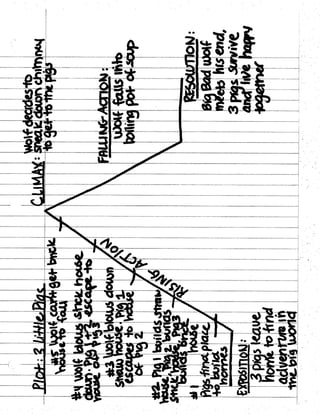 Plot: 3 Little Pigs
CLIMAX: wolf decides to
sneak down chimney
to get to the pigs
#5 wolf can't get brick
house to fall
#4 wolf blows stick house
down. Pig 1+2 escape to
house of Pig 3
#3 wolf blows down
straw house. Pig 1
escapes to house
of Pig 2
#2 Pig 1 builds straw
house, Pig 2 builds
stick house, Pig 3
builds brick
house
#1
Pigs find place
to build
homes
RISING ACTION
EXPOSITION:
3 pigs leave
home to find
adventure in
the big world
FALLING ACTION:
wolf falls into
boiling pot of soup
RESOLUTION:
Big Bad wolf
meets his end,
3 pigs survive
and live happy
together